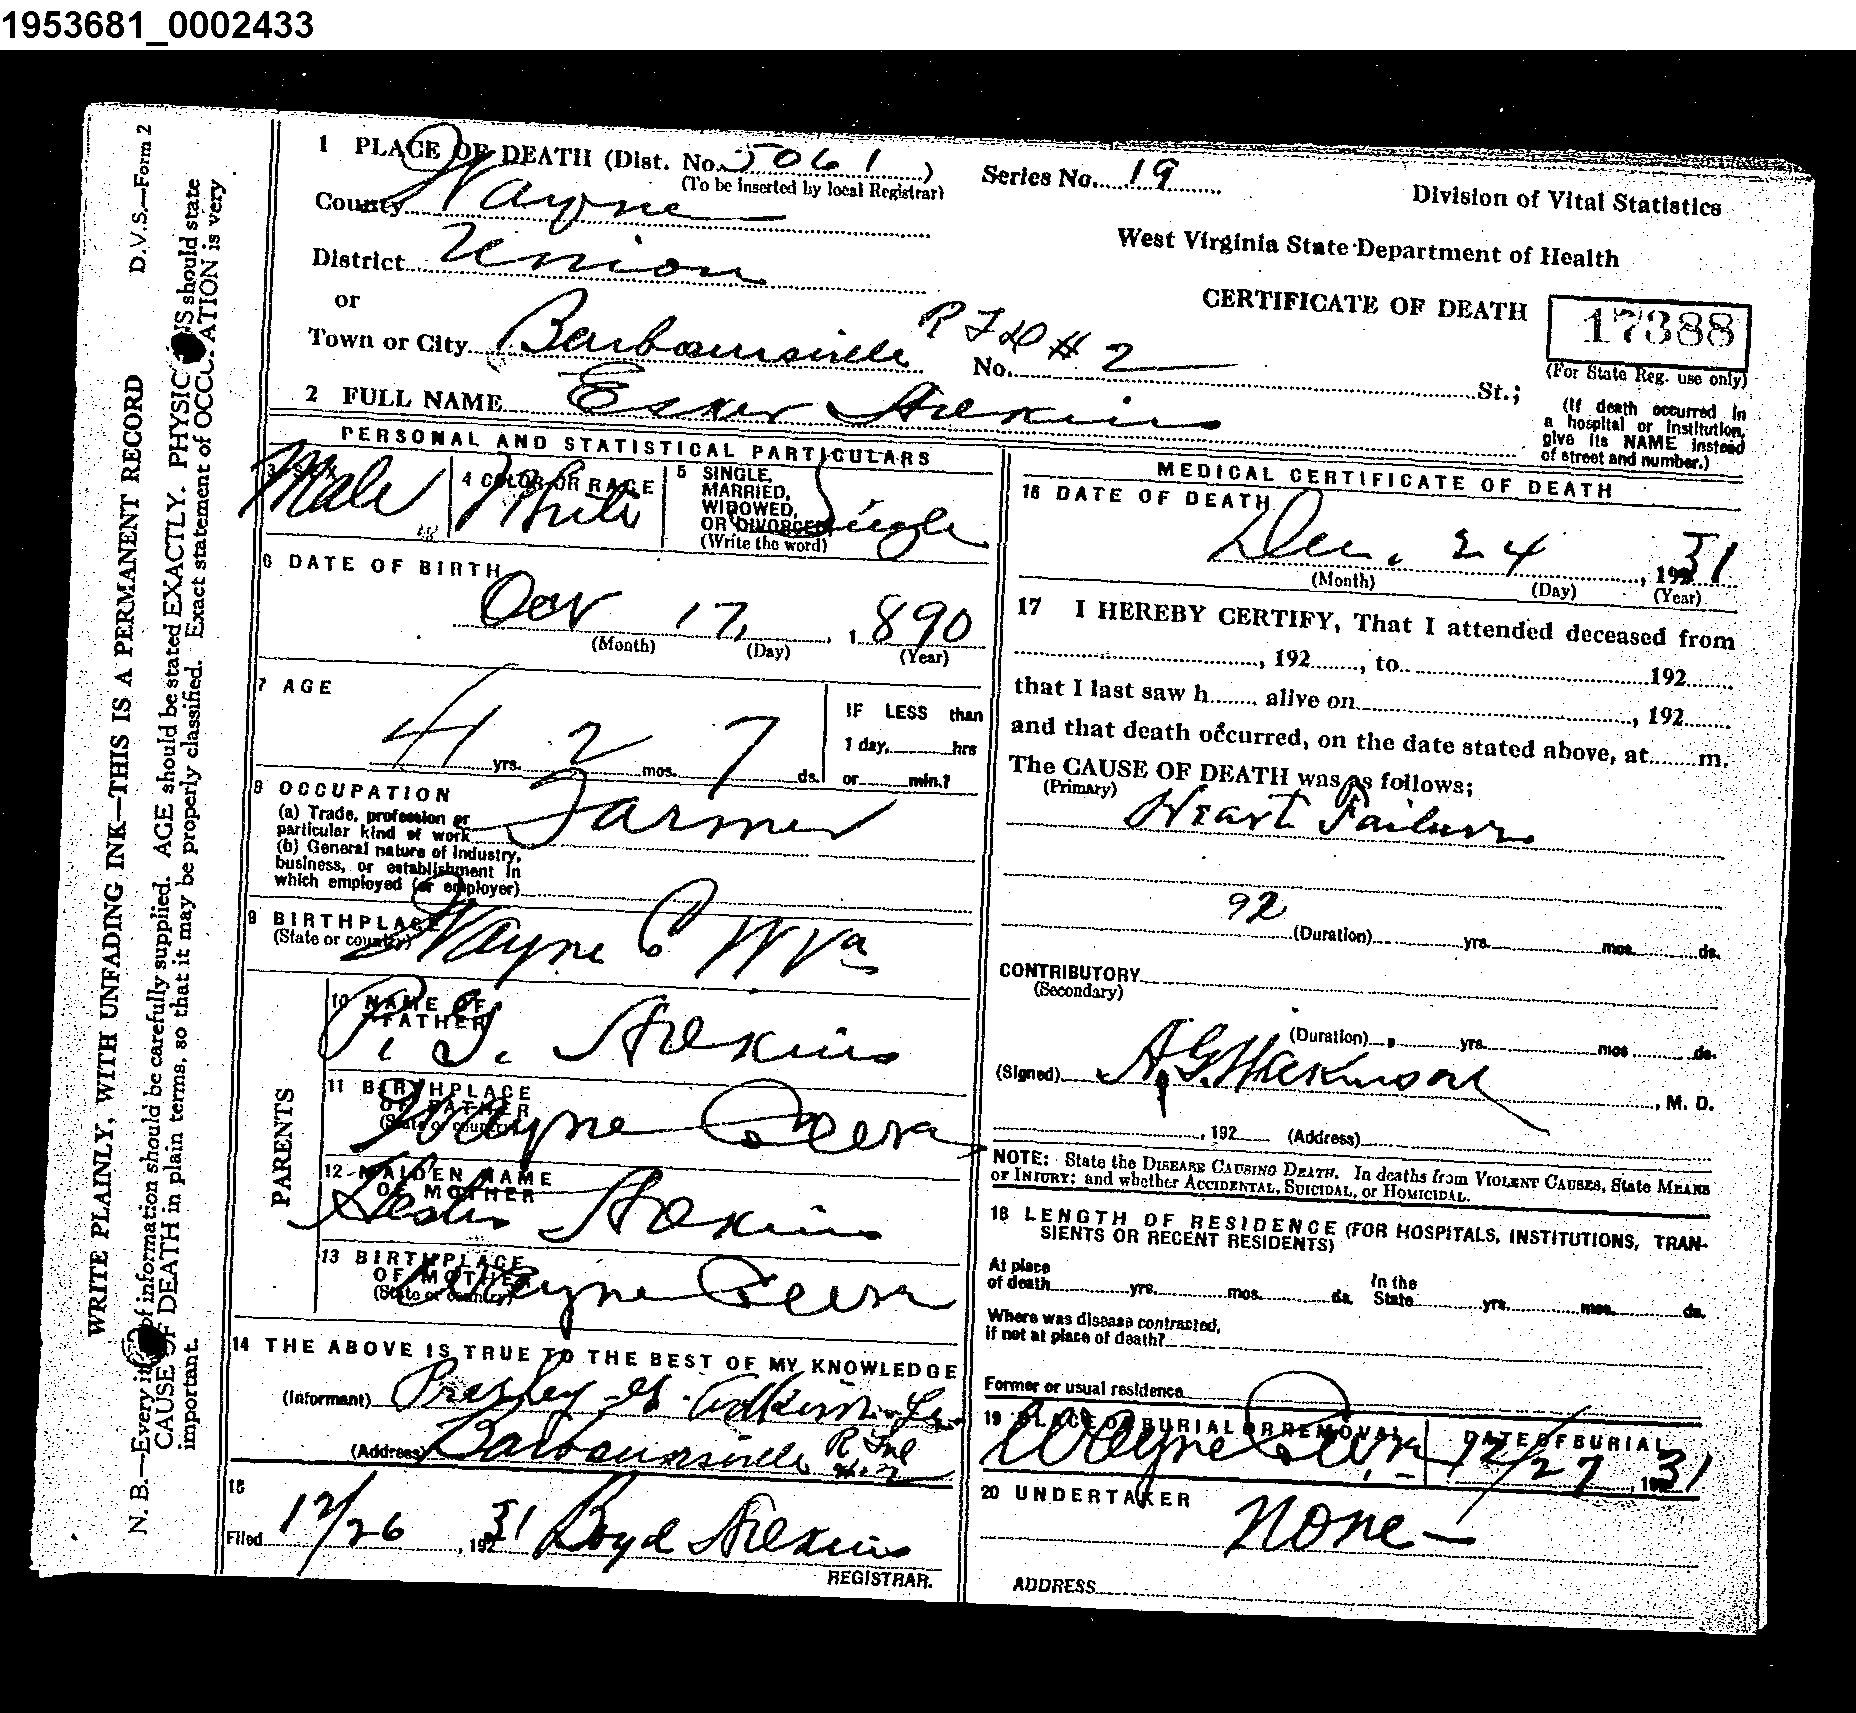 1953681_0002433
D.V.S.—Form 2
WRITE PLAINLY, WITH UNFADING INK—THIS IS A PERMANENT RECORD
N. B.—Every of information should be carefully supplied. AGE should be stated EXACTLY. PHYSIC S should state
CAUSE OF DEATH in plain terms, so that it may be properly classified. Exact statement of OCCU ATION is very
important.
1 PLACE OF DEATH (Dist. No. 5061)
(To be inserted by local Registrar)
Series No. 19
Division of Vital Statistics
County Wayne
West Virginia State Department of Health
District Union
or
CERTIFICATE OF DEATH
17388
(For State Reg. use only)
Town or City Barboursville RFD # 2 No. St.;
(If death occurred in
a hospital or institution,
give its NAME instead
of street and number.)
2 FULL NAME Esker Adkins
PERSONAL AND STATISTICAL PARTICULARS
3 SEX
Male
4 COLOR OR RACE
White
5 SINGLE,
MARRIED,
WIDOWED,
OR DIVORCED
(Write the word)
Single
6 DATE OF BIRTH
Oct 17, 1890
(Month) (Day) (Year)
7 AGE
41 yrs. 2 mos. 7 ds.
IF LESS than
1 day, hrs
or min.?
8 OCCUPATION
(a) Trade, profession or
particular kind of work Farmer
(b) General nature of Industry,
business, or establishment in
which employed (or employer)
9 BIRTHPLACE
(State or country)
Wayne C W Va
PARENTS
10 NAME OF
FATHER
P. G. Adkins
11 BIRTHPLACE
OF FATHER
(State or country)
Wayne Co W Va
12 MAIDEN NAME
OF MOTHER
Adkins
13 BIRTHPLACE
OF MOTHER
(State or country)
Wayne Co W Va
14 THE ABOVE IS TRUE TO THE BEST OF MY KNOWLEDGE
(Informant) Presley G. Adkins
(Address) Barboursville R Fd
# 2
15
Filed 12/26, 1931 Boyd Adkins
REGISTRAR.
MEDICAL CERTIFICATE OF DEATH
16 DATE OF DEATH
Dec. 24, 1931
(Month) (Day) (Year)
17 I HEREBY CERTIFY, That I attended deceased from
, 192 , to 192
that I last saw h alive on , 192
and that death occurred, on the date stated above, at m.
The CAUSE OF DEATH was as follows;
(Primary)
Heart Failure
92
(Duration) yrs. mos. ds.
CONTRIBUTORY
(Secondary)
(Duration) yrs. mos ds.
(Signed) A. G. Wilkinson, M. D.
, 192 (Address)
NOTE: State the DISEASE CAUSING DEATH. In deaths from VIOLENT CAUSES, State MEANS
OF INJURY; and whether ACCIDENTAL, SUICIDAL, or HOMICIDAL.
18 LENGTH OF RESIDENCE (FOR HOSPITALS, INSTITUTIONS, TRAN-
SIENTS OR RECENT RESIDENTS)
At place
of death yrs. mos. ds. In the
State yrs. mos. ds.
Where was disease contracted,
if not at place of death?
Former or usual residence
19 PLACE OF BURIAL OR REMOVAL
Wayne Co W. Va
DATE OF BURIAL
12/27, 1931
20 UNDERTAKER
None
ADDRESS